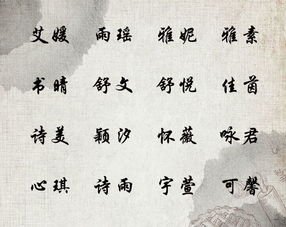 艾媛 雨瑶 雅妮 雅素
书晴 舒文 舒悦 佳茵
诗美 颖汐 怀薇 咏君
心琪 诗雨 宇萱 可馨